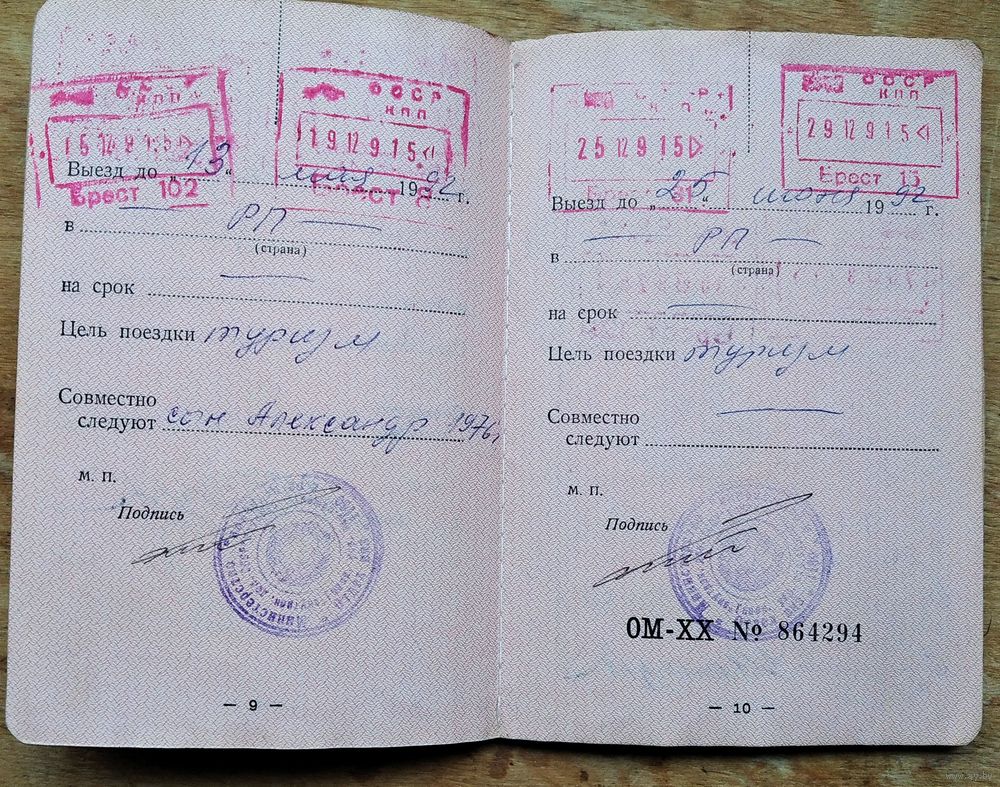 СССР
КПП
15 12 9 1 5
Брест 102
СССР
КПП
19 12 9 1 5
Выезд до „13“ мая 1992 г.
в РП
(страна)
на срок
Цель поездки туризм
Совместно
следуют сын Александр 1976г
м. п.
Подпись
Министерство
— 9 —
25 12 9 1 5
Брест
СССР
КПП
29 12 9 1 5
Брест 15
Выезд до „25“ июня 1992 г.
в РП
(страна)
на срок
Цель поездки туризм
Совместно
следуют
м. п.
Подпись
ОМ-XX № 864294
— 10 —